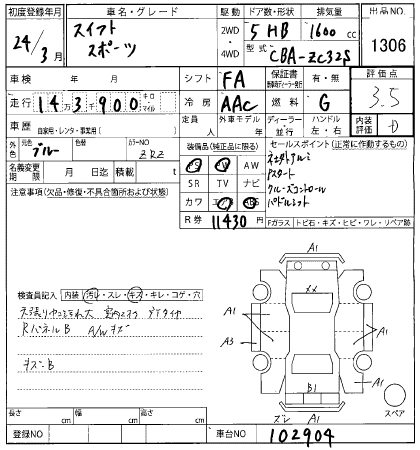 初度登録年月
24/3月
車名・グレード
スイフト
スポーツ
駆動
2WD
4WD
ドア数・形状
5HB
排気量
1600 cc
型式
CBA-ZC32S
出品NO.
1306
車検 年 月
シフト FA
保証書 有・無
評価点
3.5
走行 143900 キロ・マイル
冷房 AAC
燃料 G
車歴 自家用・レンタ・事業用( )
定員 人
外車モデル 年
ディーラー 並行
ハンドル 左・右
内装 D
外色 元色 ブルー
色替
カラーNO ZRZ
装備品(純正品に限る)
PS PW AW
SR TV ナビ
カワ エアB ABS
セールスポイント(正常に作動するもの)
社外アルミ
Pスタート
クルーズコントロール
パドルシフト
名義変更期限 月 日迄
積載 t
R券 11430円
注意事項(欠品・修復・不具合箇所および状態)
Fガラス トビ石・キズ・ヒビ・ワレ・リペア跡
検査員記入 内装(汚レ・スレ・キズ・キレ・コゲ・穴
RパネルB A/Wキズ
キズ・B
A1
A1
A3
××
A1
B1
A1
ズレ A1
スペア
長さ cm
幅 cm
高さ cm
登録NO
車台NO 102904